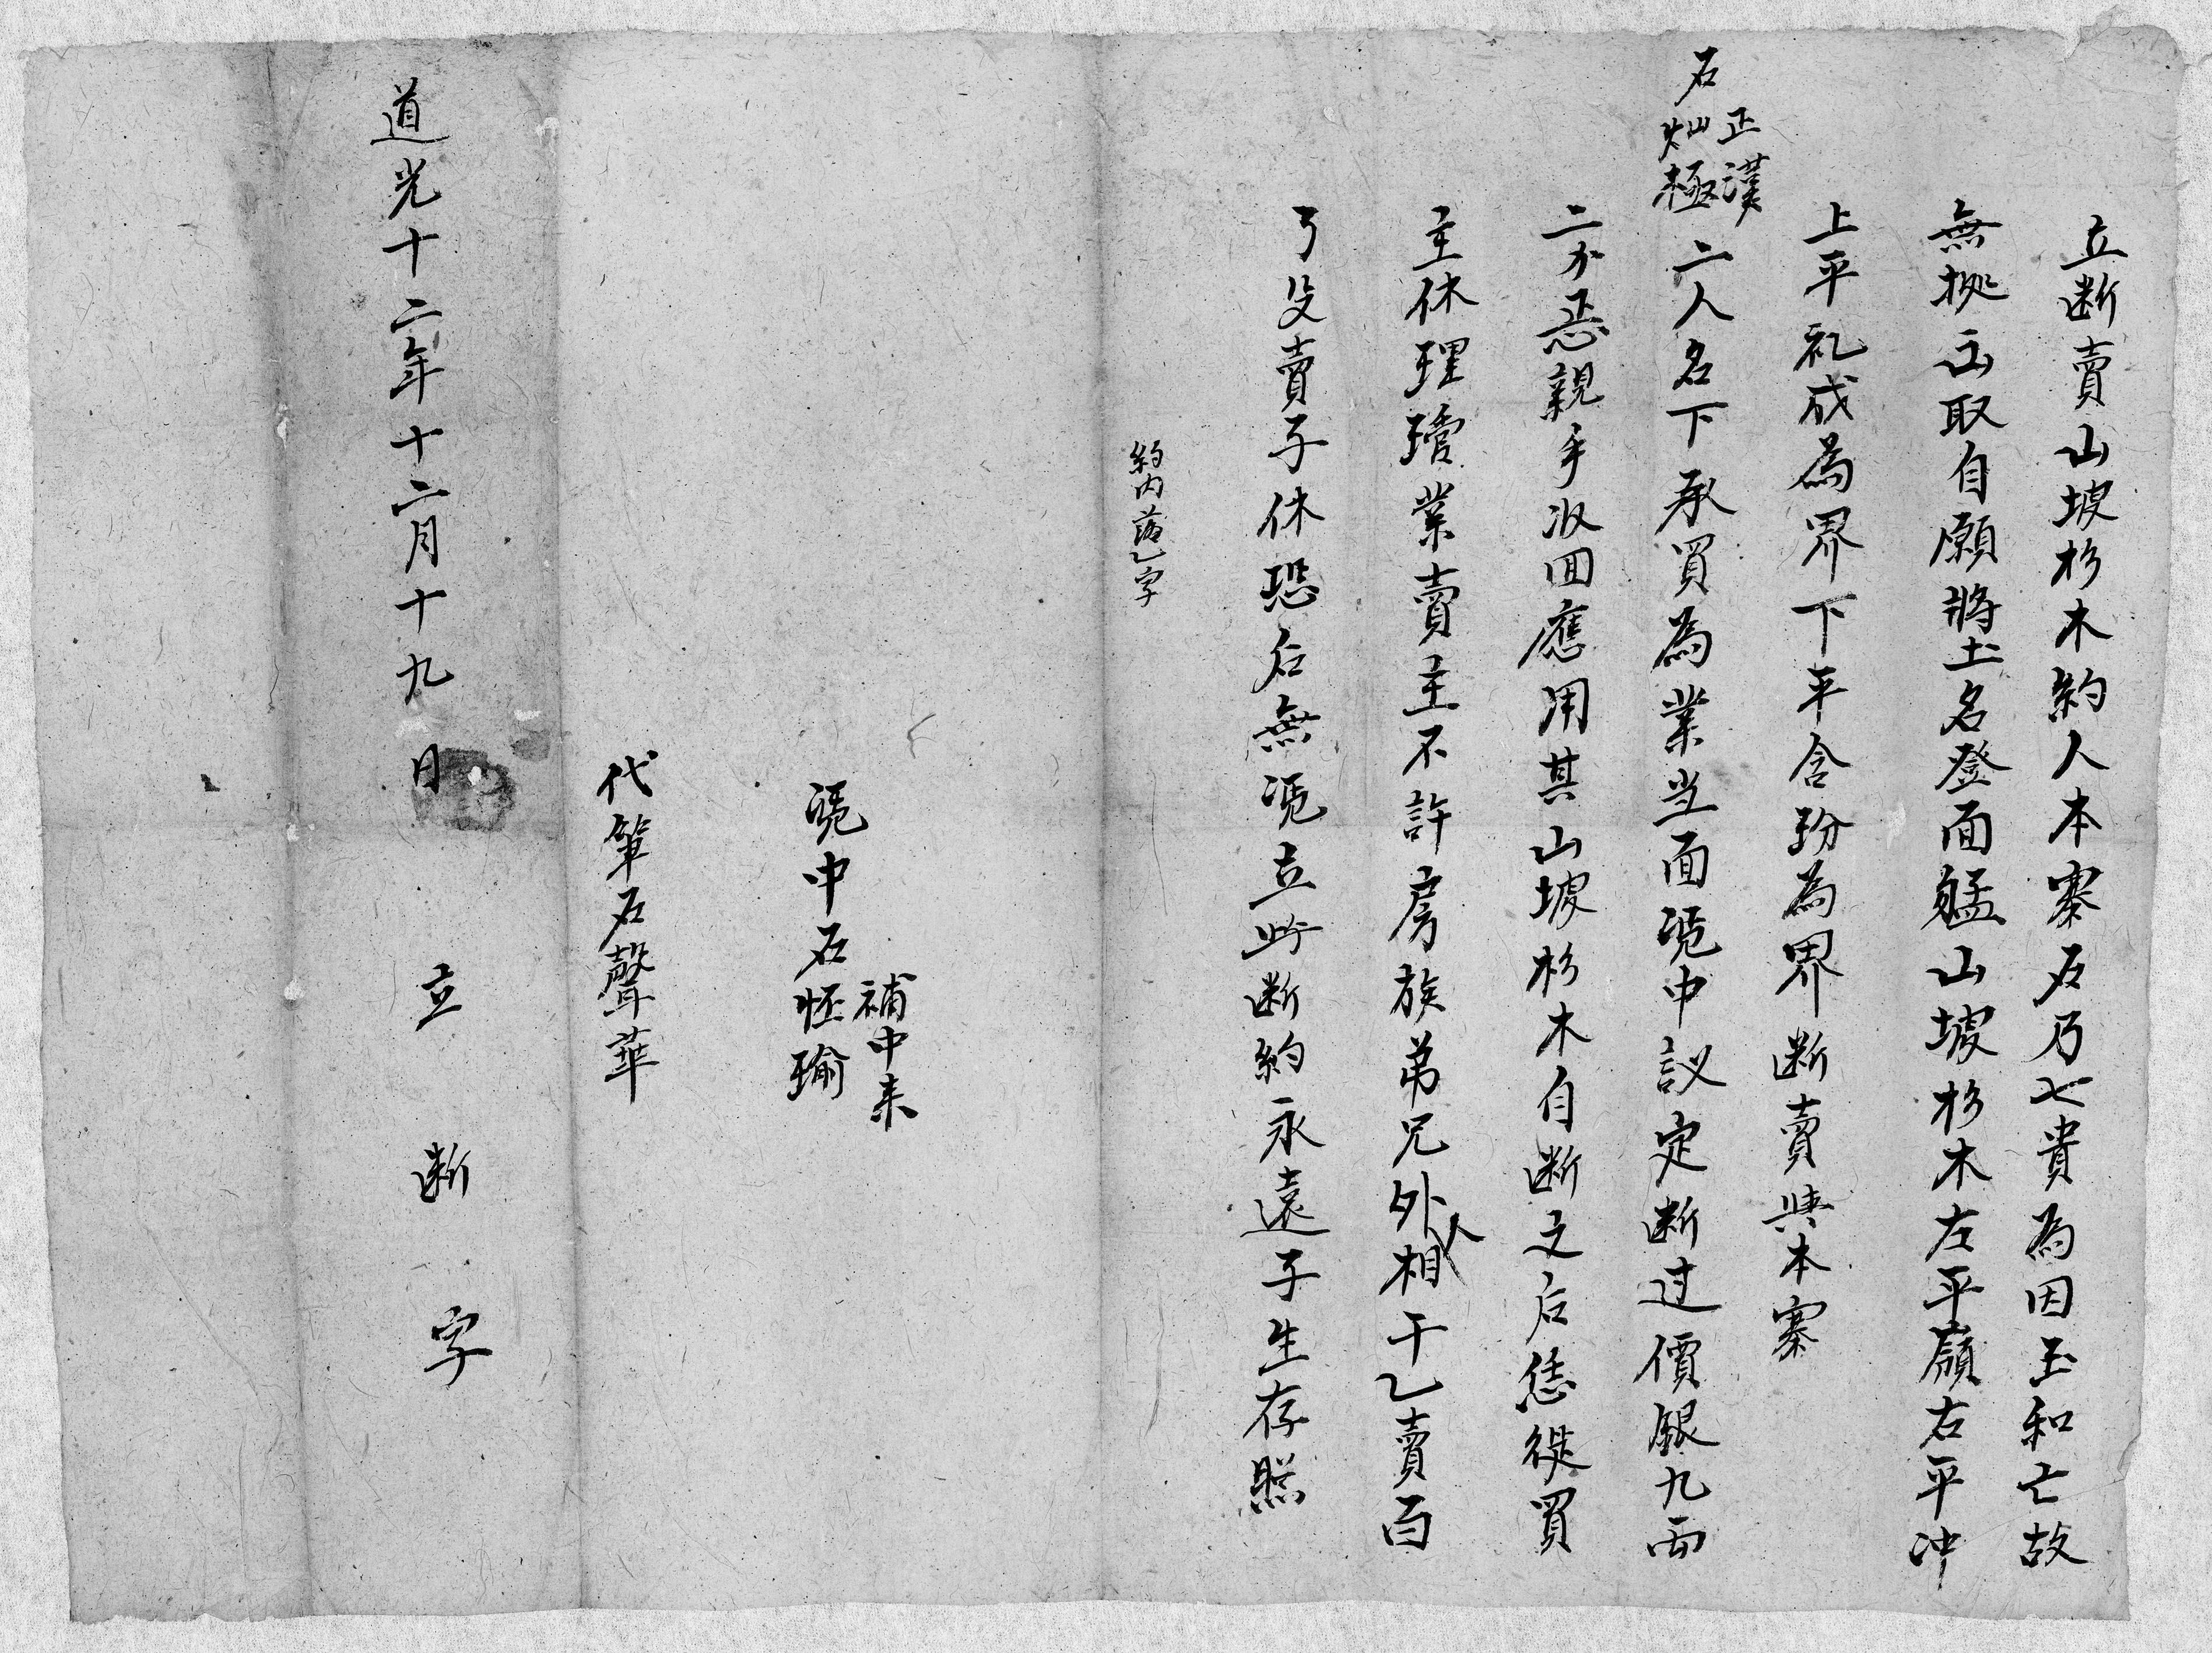 立断賣山坡杉木約人本寨石乃七貴為因玉和亡故
無抛山取自願將土名登面艋山坡杉木左平嶺右平冲
上平礼成為界下平含玢為界断賣與本寨
石正漢
灿極二人名下承買為業当面凴中議定断过價銀九両
二分正恁親手收回應用其山坡杉木自断之后恁從買
主休理瑨業賣主不許房族弟兄外人相干乙賣百
了父賣子休恐后無凴立此断約永遠子生存照
約内落乙字
補中来
凴中石怌瑜
代筆石聲華
道光十二年十二月十九日 立断字